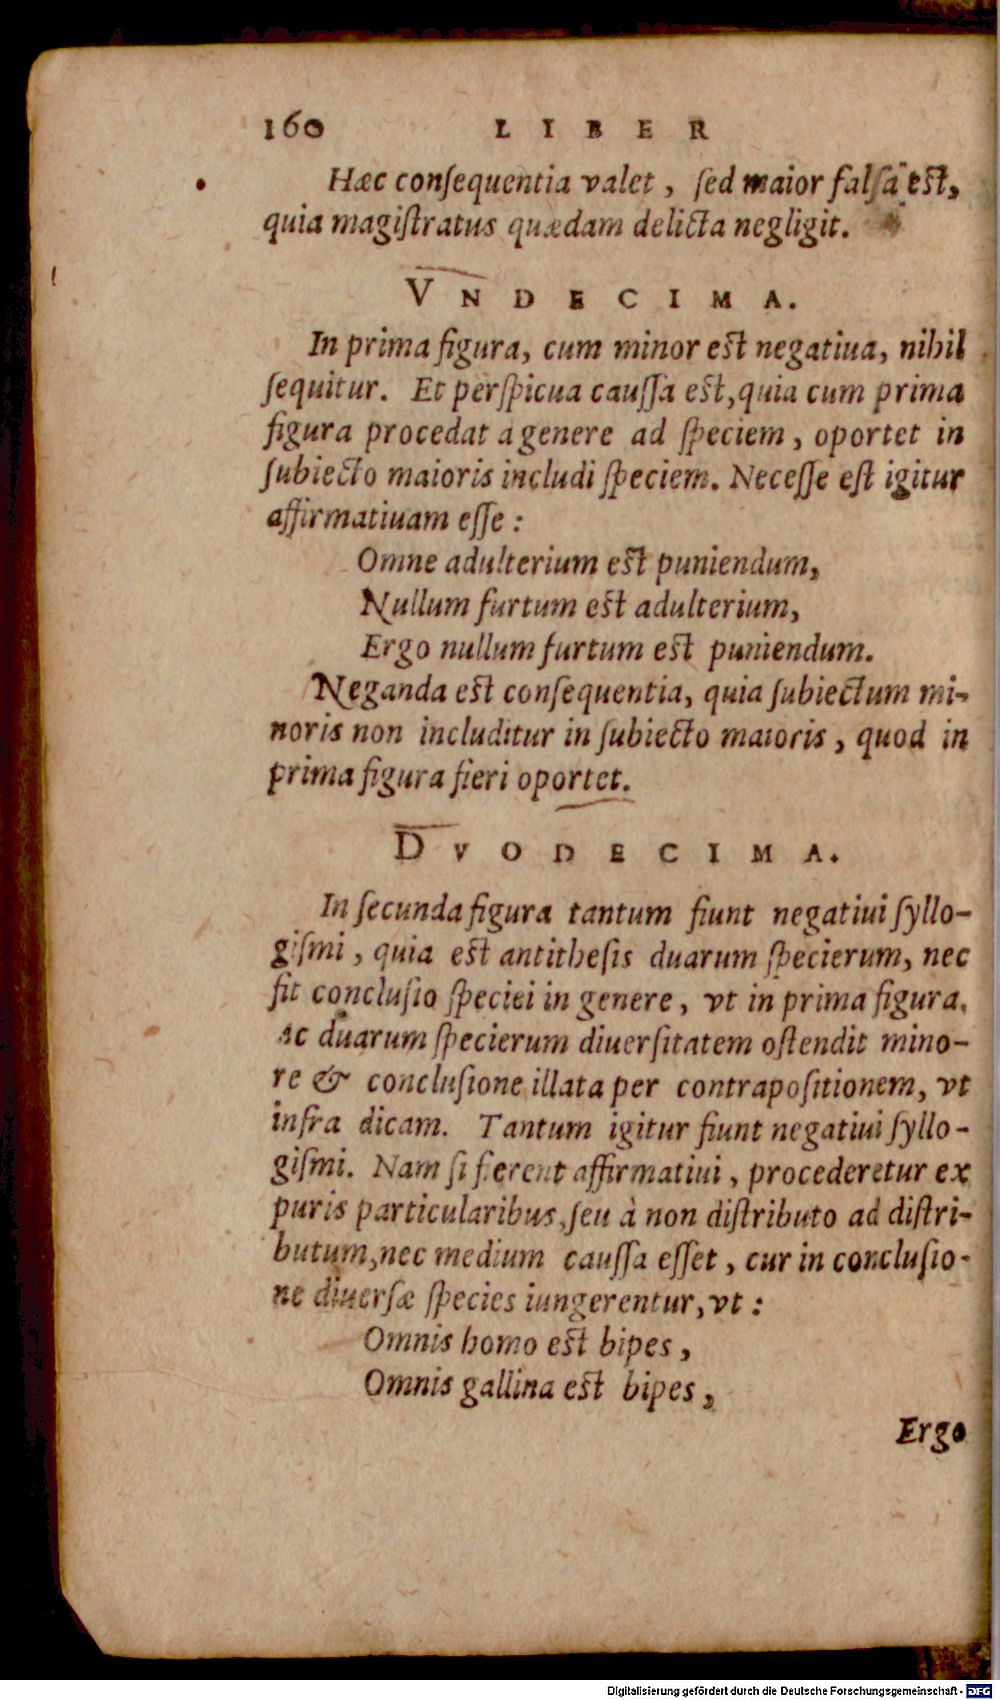 160 LIBER
Hæc conſequentia valet, ſed maior falſa est,
quia magiſtratus quædam delicta negligit.
VNDECIMA.
In prima figura, cum minor est negatiua, nihil
ſequitur. Et perſpicua cauſſa est, quia cum prima
figura procedat a genere ad ſpeciem, oportet in
ſubiecto maioris includi ſpeciem. Neceſſe eſt igitur
affirmatiuam eſſe:
Omne adulterium est puniendum,
Nullum furtum est adulterium,
Ergo nullum furtum est puniendum.
Neganda est conſequentia, quia ſubiectum mi-
noris non includitur in ſubiecto maioris, quod in
prima figura fieri oportet.
DVODECIMA.
In ſecunda figura tantum fiunt negatiui ſyllo-
giſmi, quia est antitheſis duarum ſpecierum, nec
fit concluſio ſpeciei in genere, vt in prima figura.
ac duarum ſpecierum diuerſitatem oſtendit mino-
re & concluſione illata per contrapoſitionem, vt
infra dicam. Tantum igitur fiunt negatiui ſyllo-
giſmi. Nam ſi fierent affirmatiui, procederetur ex
puris particularibus, ſeu à non diſtributo ad diſtri-
butum, nec medium cauſſa eſſet, cur in concluſio-
ne diuerſæ ſpecies iungerentur, vt:
Omnis homo est bipes,
Omnis gallina est bipes,
Ergo
Digitalisierung gefördert durch die Deutsche Forschungsgemeinschaft - DFG